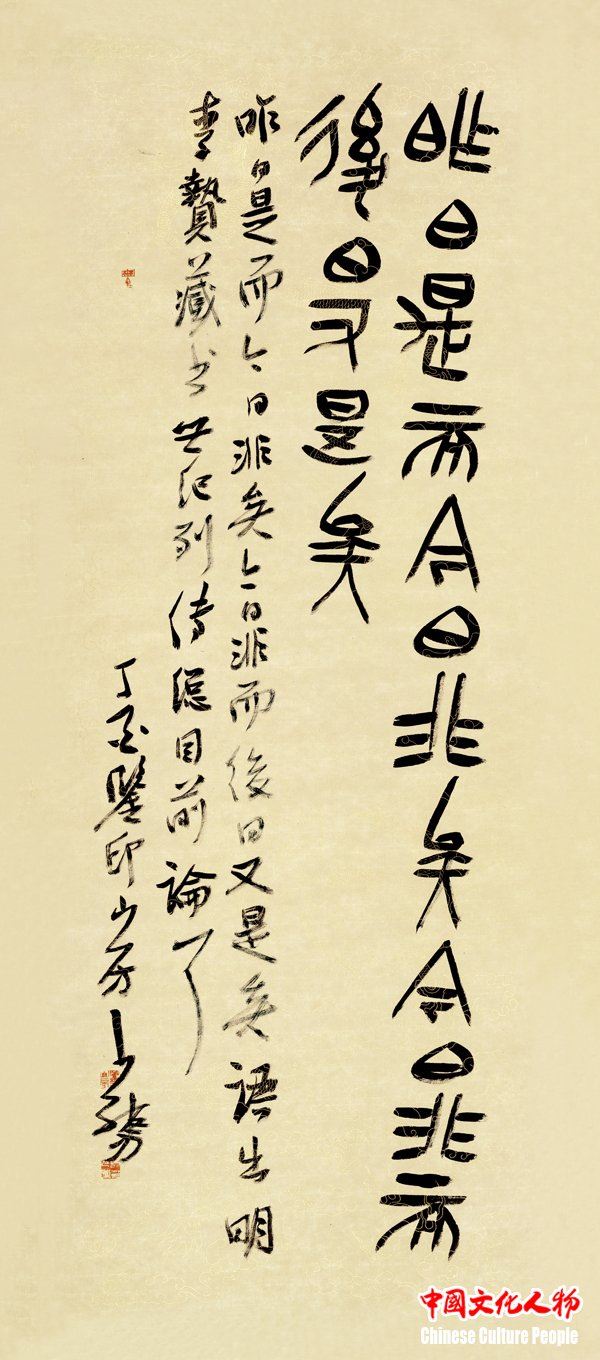 昨日是而今日非矣今日非而
後日又是矣
昨日是而今日非矣今日非而後日又是矣語出明
李贄藏書世紀列傳總目前論
丁酉鑒印山房
中國文化人物
Chinese Culture People